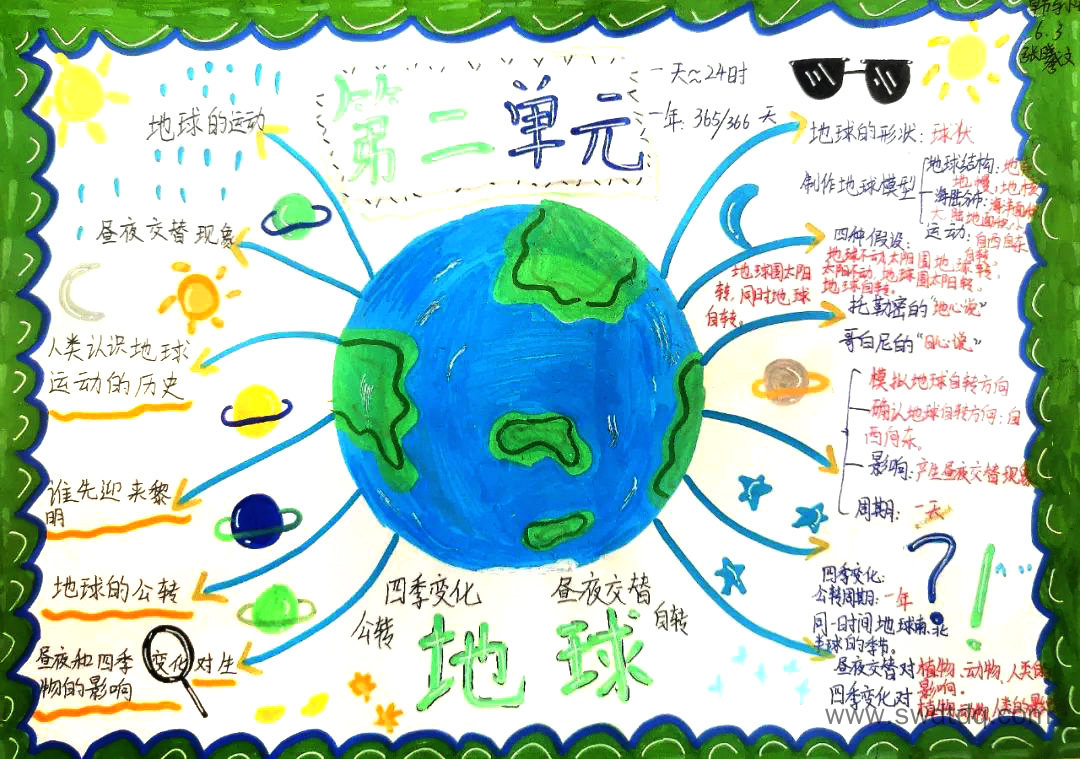 6.3
第二单元
一天≈24时
一年:365/366天
地球的运动
昼夜交替现象
人类认识地球
运动的历史
谁先迎来黎
明
地球的公转
昼夜和四季变化对生
物的影响
地球的形状:球状
制作地球模型
地球结构:地壳
地幔、地核
海陆分布:海洋面积
大陆地面积小
运动:自西向东
四种假设:
地球不动,太阳围地球转。
太阳不动,地球围太阳转。
地球自转。
自转
地球围太阳
转,同时地球
自转。
托勒密的“地心说”
哥白尼的“日心说”
模拟地球自转方向
确认地球自转方向:自
西向东。
影响:产生昼夜交替现象
周期:一天
四季变化:
公转周期:一年
同一时间地球南、北
半球的季节。
昼夜交替对植物、动物、人类的
影响。
四季变化对植物、动物、人类的影
四季变化
公转
昼夜交替
自转
地球
?
!